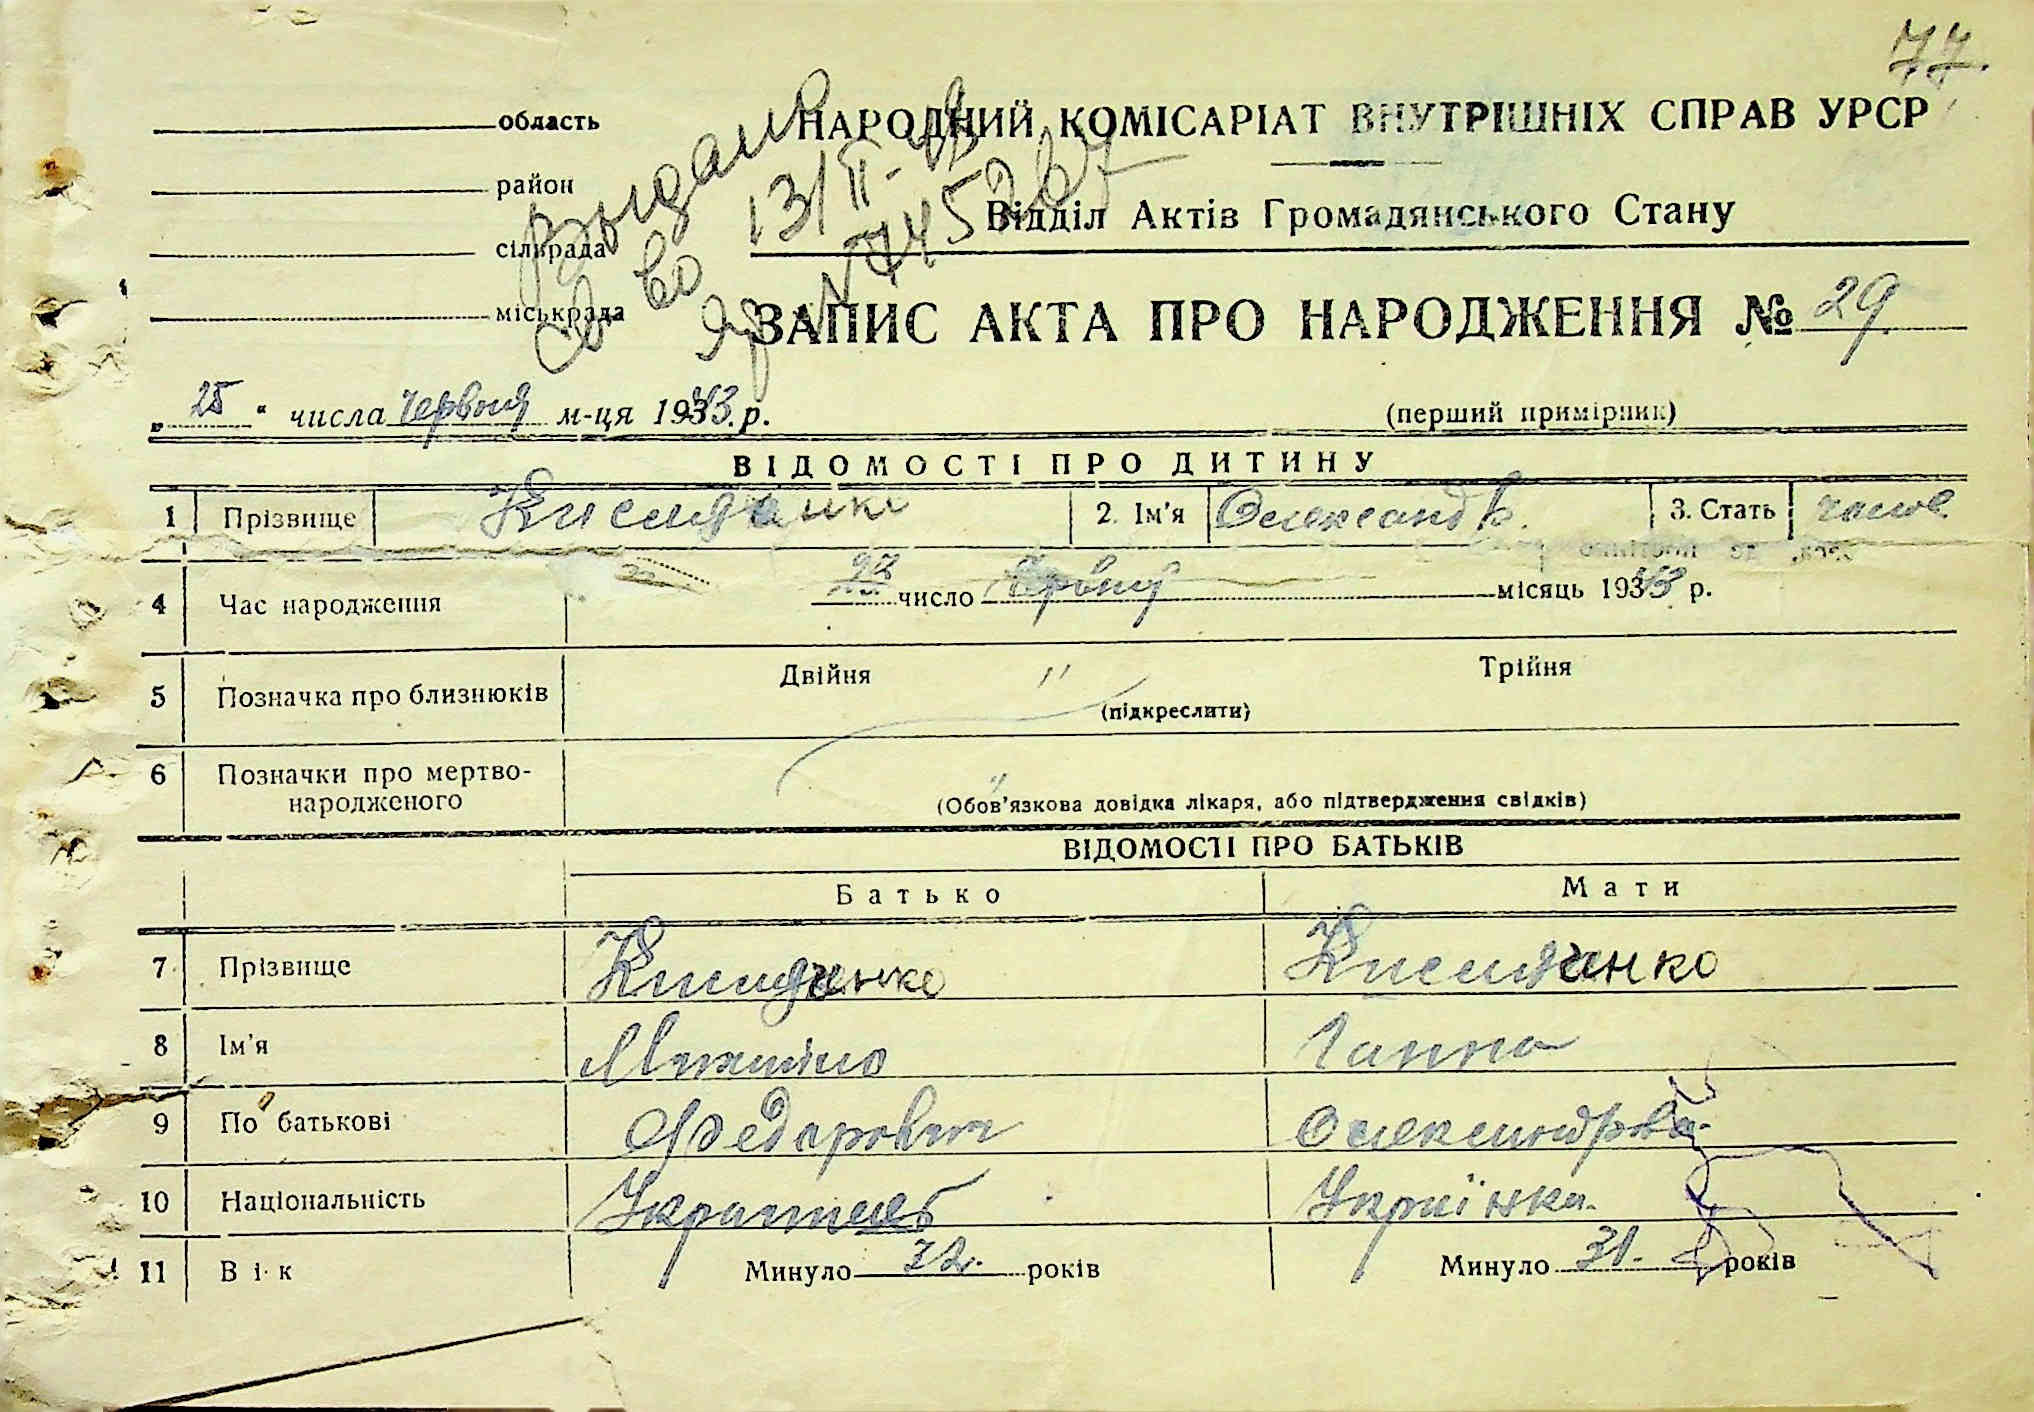 77.
область
район
сільрада
міськрада
Выдано
св во 13/II-
НАРОДНИЙ КОМІСАРІАТ ВНУТРІШНІХ СПРАВ УРСР
Відділ Актів Громадянського Стану
ЗАПИС АКТА ПРО НАРОДЖЕННЯ № 29.
„25“ числа червня м-ця 1943 р.
(перший примірник)
ВІДОМОСТІ ПРО ДИТИНУ
1 Прізвище 2. Ім'я Олександр. 3. Стать чолов.
4 Час народження 23 число червня місяць 1943 р.
5 Позначка про близнюків Двійня " Трійня
(підкреслити)
6 Позначки про мертво-
народженого "
(Обов'язкова довідка лікаря, або підтвердження свідків)
ВІДОМОСТІ ПРО БАТЬКІВ
Батько Мати
7 Прізвище
8 Ім'я Ганна
9 По батькові Федорович Олександровна
10 Національність Українець Українка
11 Вік Минуло 32. років Минуло 31. років